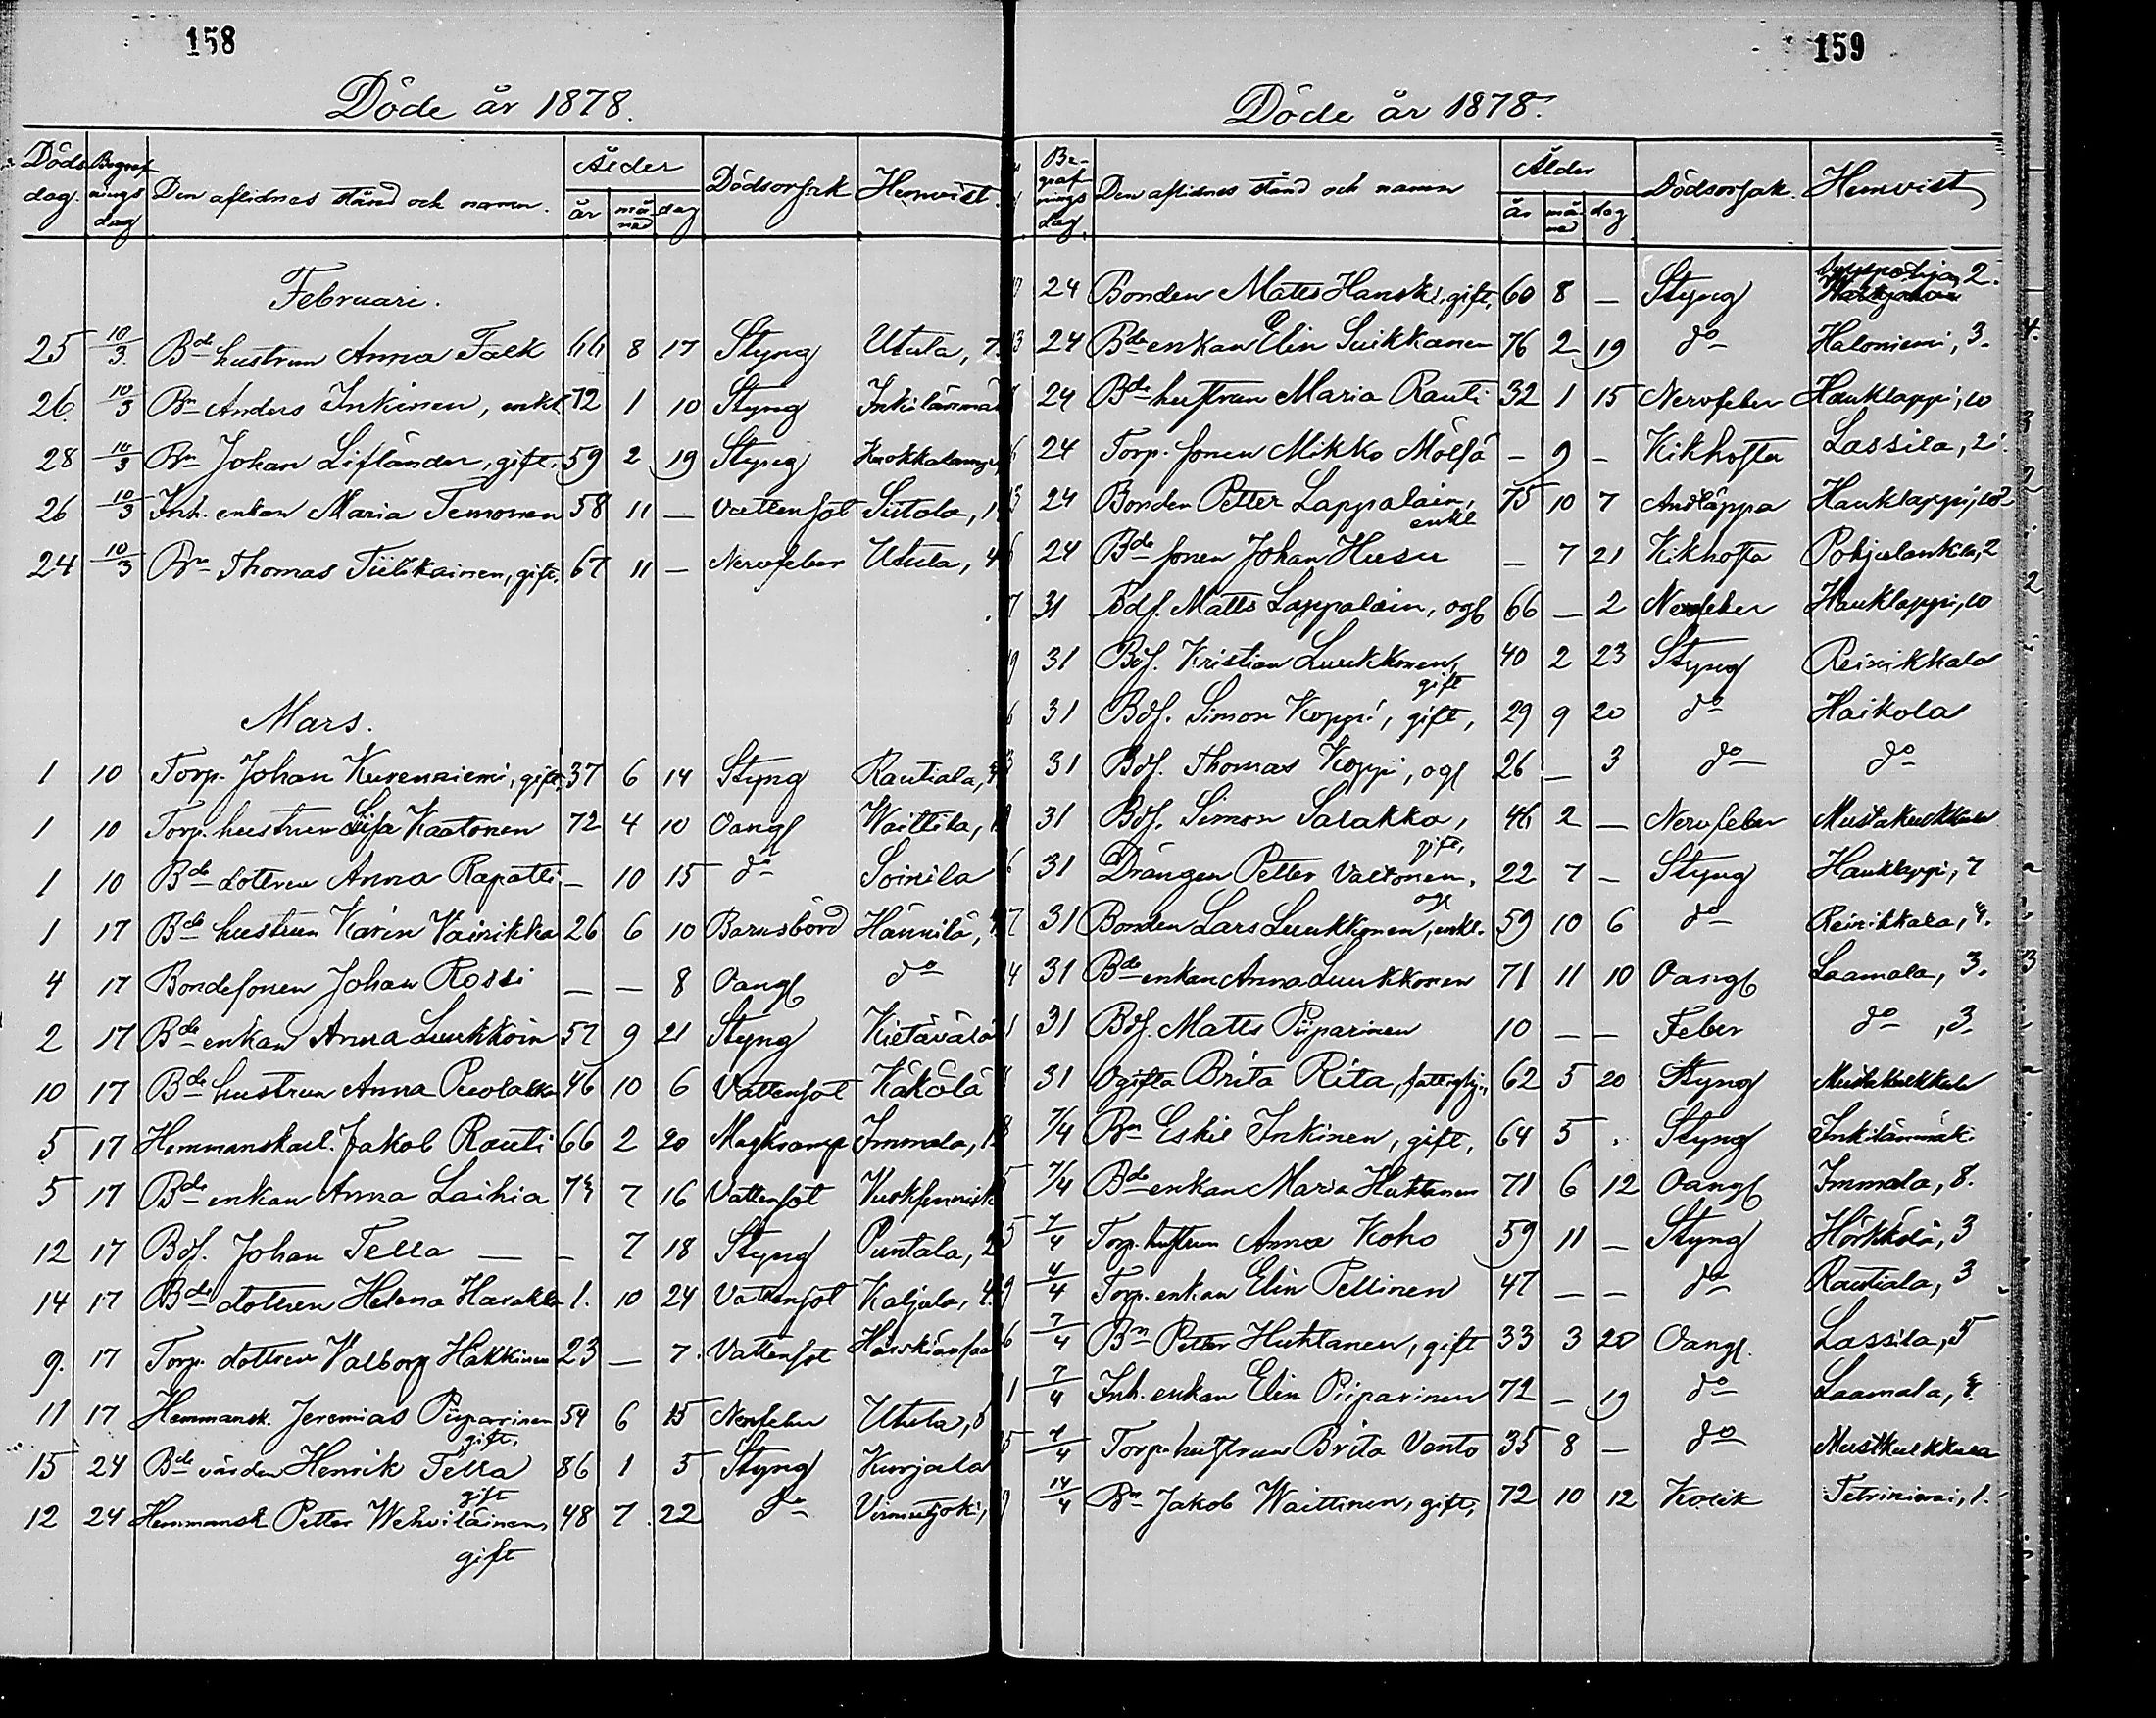 158
Döde år 1878.
Döds dag. Begrafnings dag Den aflidnes stånd och namn. Ålder år månad dag Dödsorsak Hemvist.
Februari.
25 10/3. Bde hustrun Anna Falk 66 8 17 Styng Utula, 7
26 10/3 Bn Anders Inkinen, enkl 72 1 10 Styng Inkilänmä
28 10/3 Bn Johan Lifländer, gift. 59 2 19 Styng
26 10/3 Inh. enkan Maria Temonen 58 11 — Vattensot Siitola, 1
24 10/3 Bn Thomas Tiilikainen, gift. 67 11 — Nervfeber Utula, 4
Mars.
1 10 Torp. Johan Kurenniemi, gift, 37 6 14 Styng Rautiala,
1 10 Torp. hustrun Lisa Kaatonen 72 4 10 Oangf Waittila,
1 10 Bde dottren Anna Rapatti — 10 15 do Soinila
1 17 Bde hustrun Karin Vainikka 26 6 10 Barnsbörd Hännilä,
4 17 Bondesonen Johan Rossi — — 8 Oangf do
2 17 Bde enkan Anna Luukkoin 57 9 21 Styng Kietävälä
10 17 Bde hustrun Anna Puolakka 46 10 6 Vattensot Käkölä
5 17 Hemmanskarl. Jakob Rauti 66 2 20 Magkramp Immala, 1
5 17 Bde enkan Anna Laihia 7 16 Vattensot
12 17 Bdf. Johan Tella — — 7 18 Styng Puntala, 2
14 17 Bde dottren Helena Harakka 1. 10 24 Vattensot Kaljala, 4.
9. 17 Torp. dottren Valborg Hakkinen 23 — 7. Vattensot
11 17 Hemmansk. Jeremias Piiparinen 54 6 15 Nervfeber Utula, 8
gift.
15 24 Bde värden Henrik Tella 86 1 5 Styng Kurjala
gift
12 24 Hemmansk Petter Wehviläinen, 48 7 22 do Virmutjoki,
gift
159
Döde år 1878.
Begrafnings dag. Den aflidnes stånd och namn Ålder år månad dag Dödsorsak. Hemvist
24 Bonden Matts Hanski, gift, 60 8 — Styng 2.
24 Bde enkan Elin Suikkanen 76 2 19 do Haloniemi, 3.
24 Bde hustrun Maria Rauti 32 1 15 Nervfeber Hauklappi, 10
24 Torp. sonen Mikko Mölsä — 9 — Kikhosta Lassila, 2.
24 Bonden Petter Lappalain, 75 10 7 Andtäppa Hauklappi, 10
enkl
24 Bde sonen Johan Husu — 7 21 Kikhosta Pohjalankila, 2
31 Bdf. Matts Lappalain, ogf 66 — 2 Nervfeber Hauklappi, 10
31 Bdf. Kristian Luukkonen, 40 2 23 Styng Reinikkala
gift
31 Bdf. Simon Koppi, gift, 29 9 20 do Haikola
31 Bdf. Thomas Koppi, ogf 26 — 3 do do
31 Bdf. Simon Salakka, 46 2 — Nervfeber Mustakulkkula
gift,
31 Drängen Petter Valtonen, 22 7 — Styng Hauklappi, 7
ogf
31 Bonden Lars Luukkonen, enkl. 59 10 6 do Reinikkala, 4.
31 Bde enkan Anna Luukkonen 71 11 10 Oangf Laamala, 3.
31 Bdf. Matts Piiparinen 10 — — Feber do, 3.
31 Ogifta Brita Rita, fattighj., 62 5 20 Styng Mustakulkkula
7/4 Bn Eskil Inkinen, gift, 64 5 . Styng Inkilänmäki
7/4 Bde enkan Maria Huhtanen 71 6 12 Oangf Immala, 8.
7/4 Torp. hustrun Anna Koho 59 11 — Styng Hörkkölä, 3
4/4 Torp. enkan Elin Pellinen 47 — — do Rautiala, 3
7/4 Bn Petter Huhtanen, gift 33 3 20 Oangf. Lassila, 5
7/4 Inh. enkan Elin Piiparinen 72 — 19 do Laamala, 4.
7/4 Torp. hustrun Brita Vanto 35 8 — do Mustkulkkula
14/4 Bn Jakob Waittinen, gift, 72 10 12 Kolik Tetriniemi, 1.